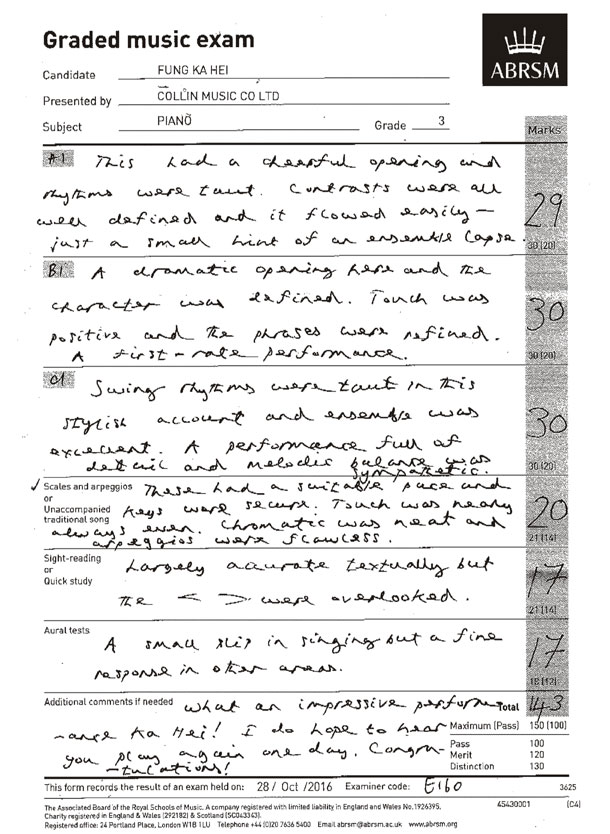 Graded music exam
ABRSM
Candidate FUNG KA HEI
Presented by COLLIN MUSIC CO LTD
Subject PIANO Grade 3
Marks
A1 This had a cheerful opening and
rhythms were taut. Contrasts were all
well defined and it flowed easily –
just a small hint of an ensemble lapse.
29
30 (20)
B1 A dramatic opening here and the
character was defined. Touch was
positive and the phrases were refined.
A first-rate performance.
30
30 (20)
C1 Swing rhythms were taut in this
stylish account and ensemble was
excellent. A performance full of
detail and melodic balance was
sympathetic.
30
30 (20)
✓ Scales and arpeggios
or
Unaccompanied
traditional song
These had a suitable pace and
keys were secure. Touch was nearly
always even. Chromatic was neat and
arpeggios were flawless.
20
21 (14)
Sight-reading
or
Quick study
Largely accurate textually but
the < > were overlooked.
17
21 (14)
Aural tests
A small slip in singing but a fine
response in other areas.
17
18 (12)
Additional comments if needed What an impressive perform
-ance Ka Hei! I do hope to hear
you play again one day. Congra-
-tulations!
Total 143
Maximum (Pass) 150 (100)
Pass 100
Merit 120
Distinction 130
This form records the result of an exam held on: 28 / Oct / 2016 Examiner code: E160 3625
45430001 (C4)
The Associated Board of the Royal Schools of Music. A company registered with limited liability in England and Wales No.1926395.
Charity registered in England & Wales (292182) & Scotland (SC043343).
Registered office: 24 Portland Place, London W1B 1LU Telephone +44 (0)20 7636 5400 Email abrsm@abrsm.ac.uk www.abrsm.org